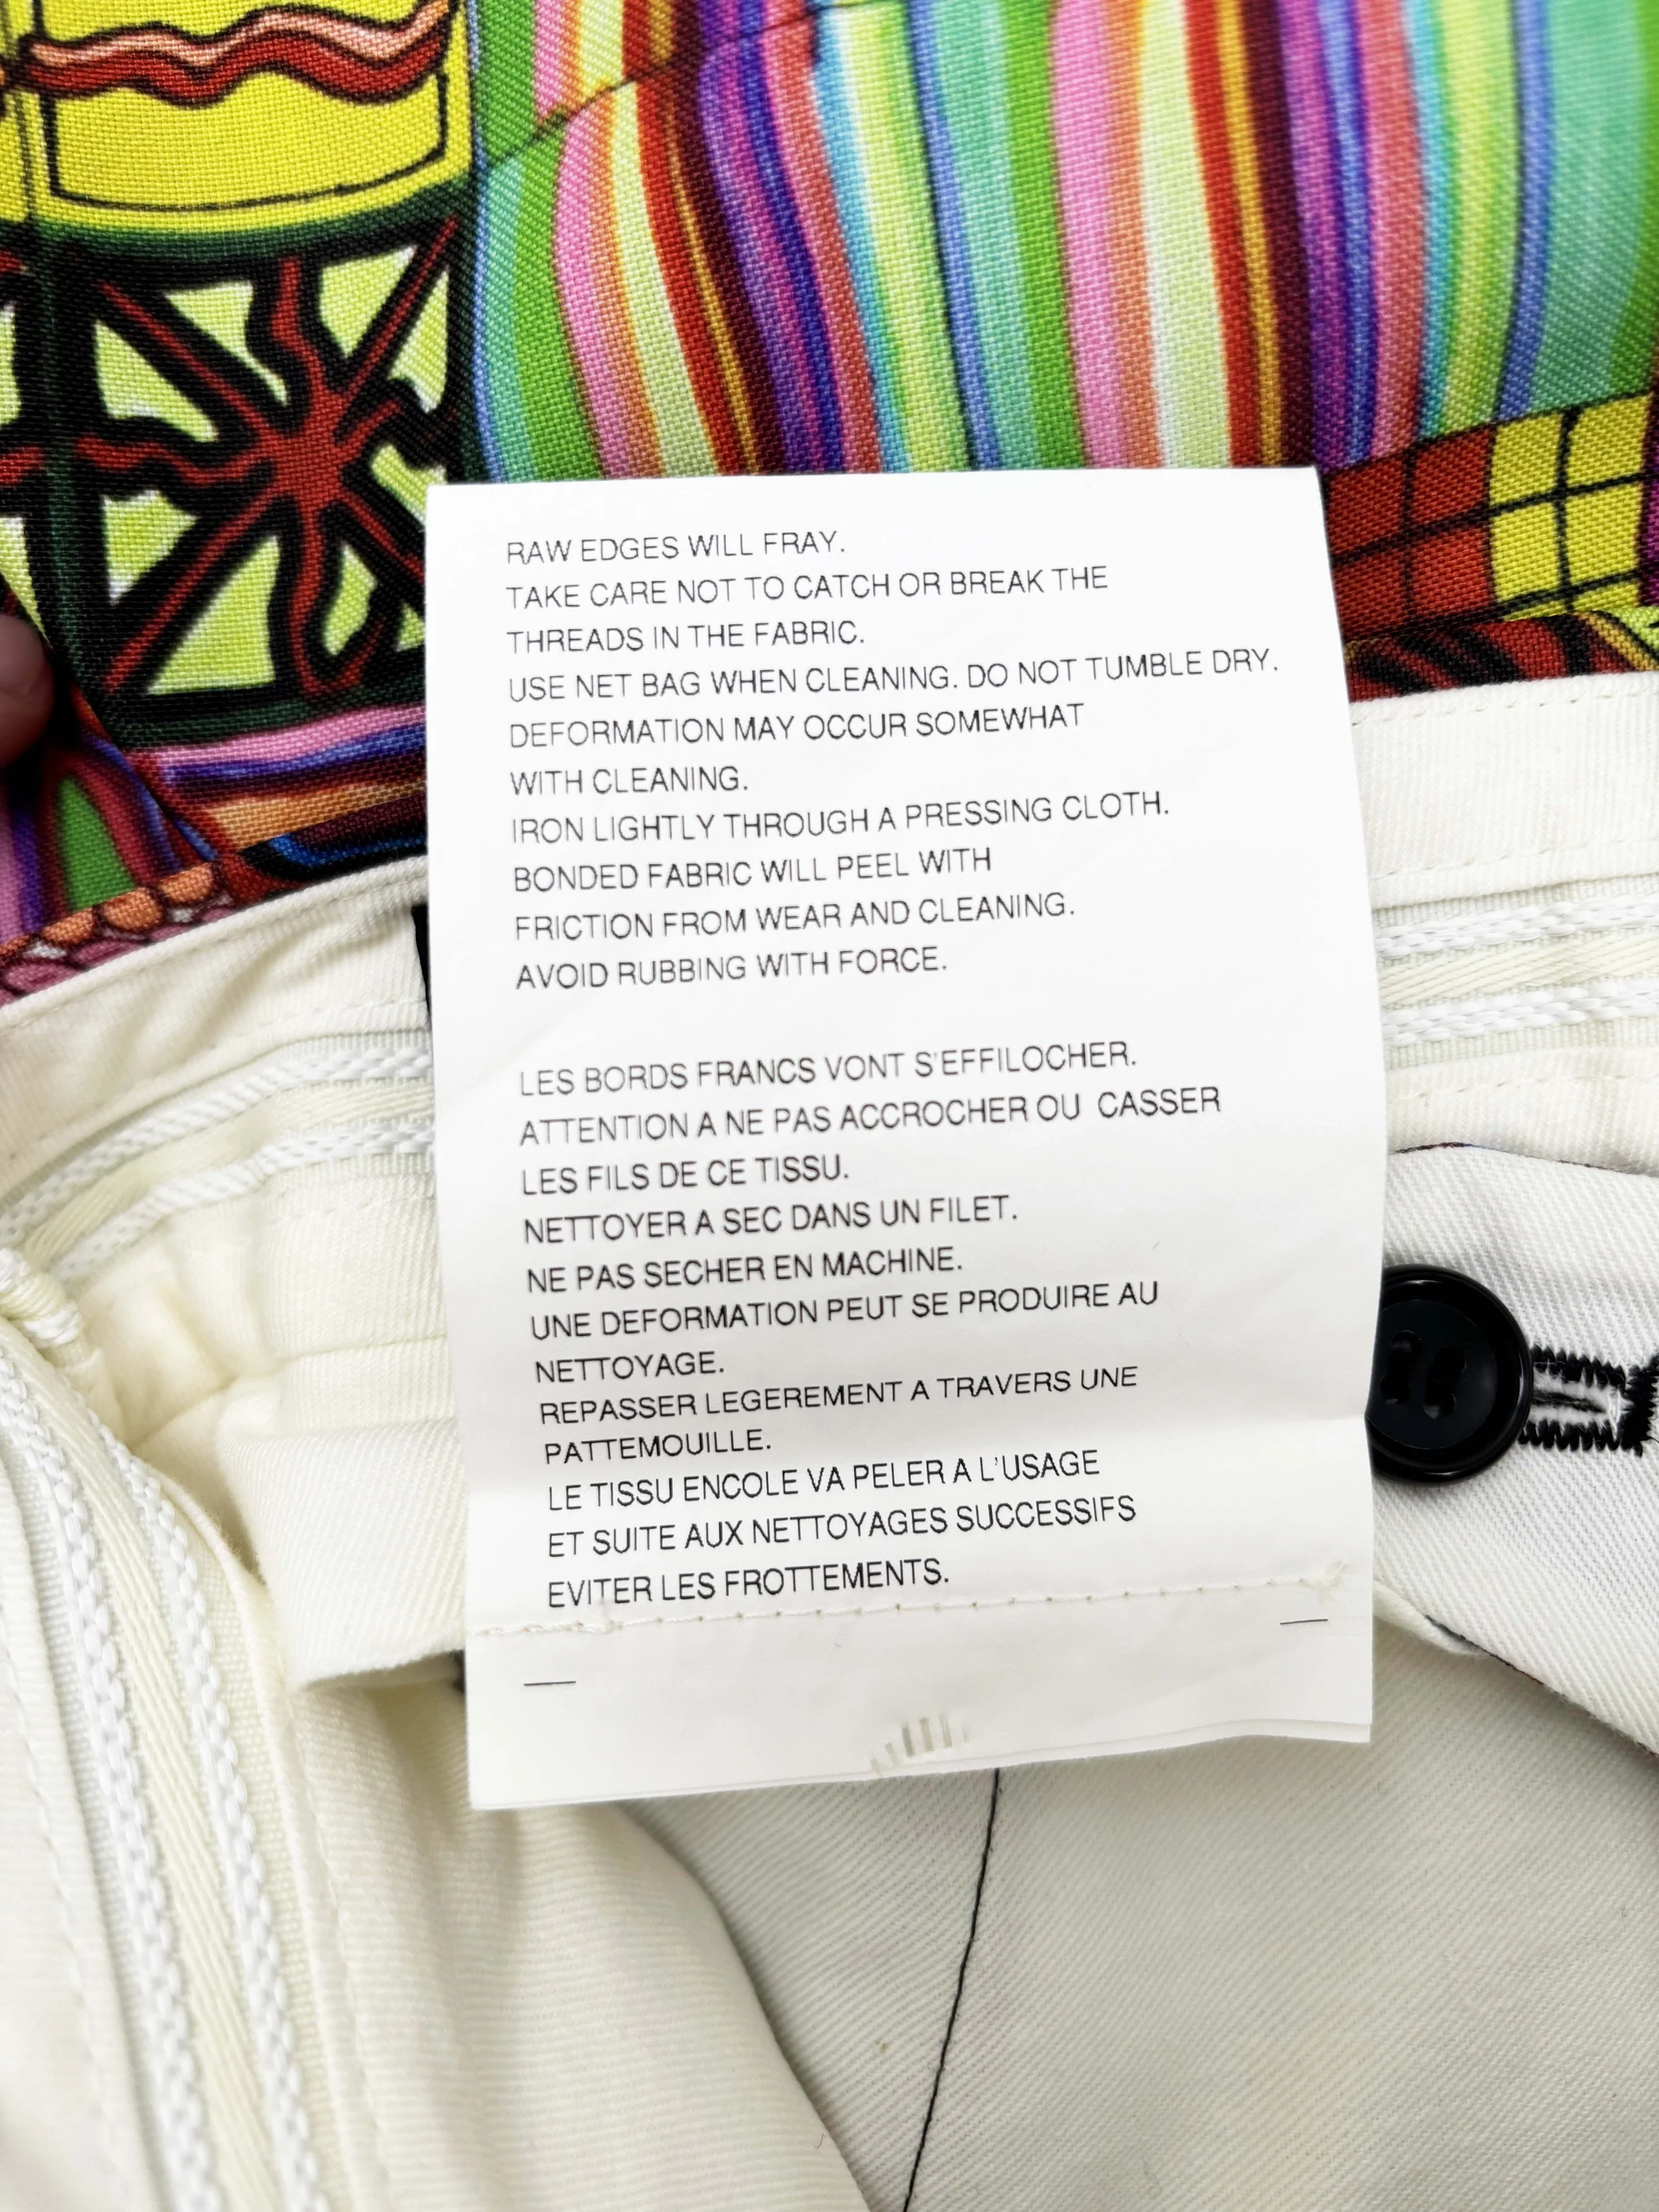 RAW EDGES WILL FRAY.
TAKE CARE NOT TO CATCH OR BREAK THE
THREADS IN THE FABRIC.
USE NET BAG WHEN CLEANING. DO NOT TUMBLE DRY.
DEFORMATION MAY OCCUR SOMEWHAT
WITH CLEANING.
IRON LIGHTLY THROUGH A PRESSING CLOTH.
BONDED FABRIC WILL PEEL WITH
FRICTION FROM WEAR AND CLEANING.
AVOID RUBBING WITH FORCE.
LES BORDS FRANCS VONT S'EFFILOCHER.
ATTENTION A NE PAS ACCROCHER OU CASSER
LES FILS DE CE TISSU.
NETTOYER A SEC DANS UN FILET.
NE PAS SECHER EN MACHINE.
UNE DEFORMATION PEUT SE PRODUIRE AU
NETTOYAGE.
REPASSER LEGEREMENT A TRAVERS UNE
PATTEMOUILLE.
LE TISSU ENCOLE VA PELER A L'USAGE
ET SUITE AUX NETTOYAGES SUCCESSIFS
EVITER LES FROTTEMENTS.